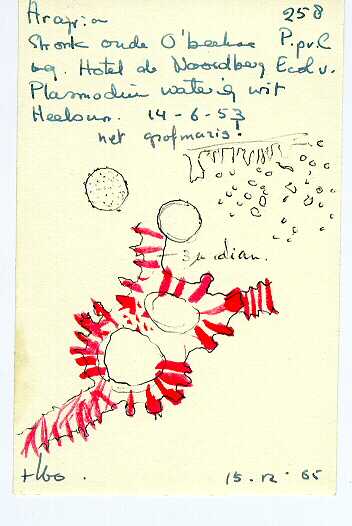 Arcyria 258
Stronk oude O'beekse P.p.v.C
bg. Hotel de Noordberg Ecol v.
Plasmodium waterig wit
Heelsum. 14-6-53
net grofmazig!
3 µ diam.
15.12.65